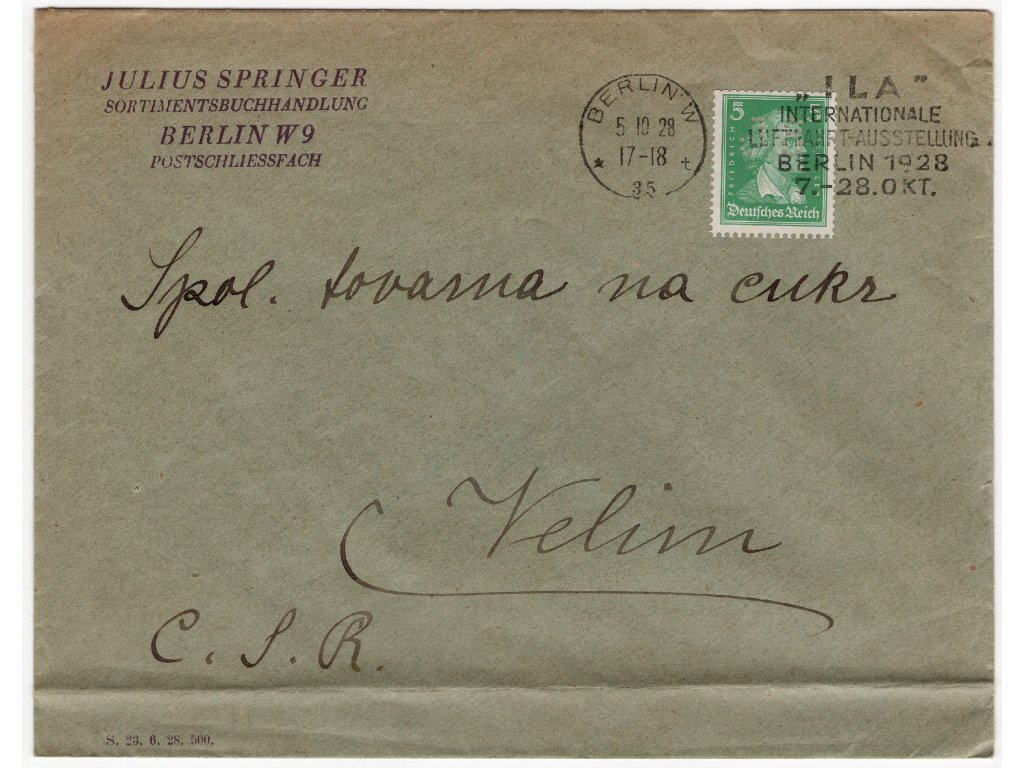 JULIUS SPRINGER
SORTIMENTSBUCHHANDLUNG
BERLIN W 9
POSTSCHLIESSFACH
BERLIN W
5 10 28
17-18
35
5
FRIEDRICH
Deutsches Reich
„ILA"
INTERNATIONALE
LUFTFAHRT-AUSSTELLUNG
BERLIN 1928
7.-28.OKT.
Spol. tovarna na cukr
Velim
C. S. R.
S. 23. 6. 28. 500.